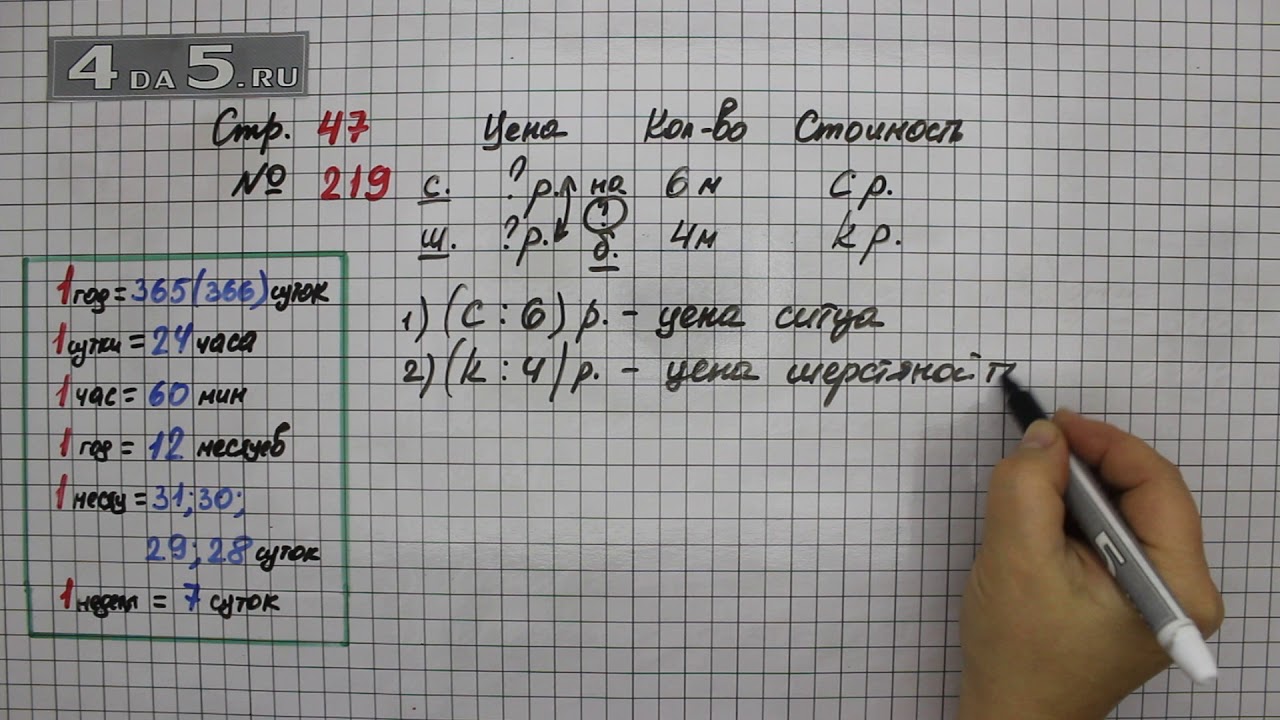 4DA5.RU
Стр. 47 Цена Кол-во Стоимость
№ 219 с. ? р. на 6 м С р.
ш. ? р. ? б. 4м К р.
1) (С : 6) р. - цена ситца
2) (К : 4) р. - цена шерстяной т
1 год = 365(366) суток
1 сутки = 24 часа
1 час = 60 мин
1 год = 12 месяцев
1 месяц = 31; 30;
29; 28 суток
1 неделя = 7 суток